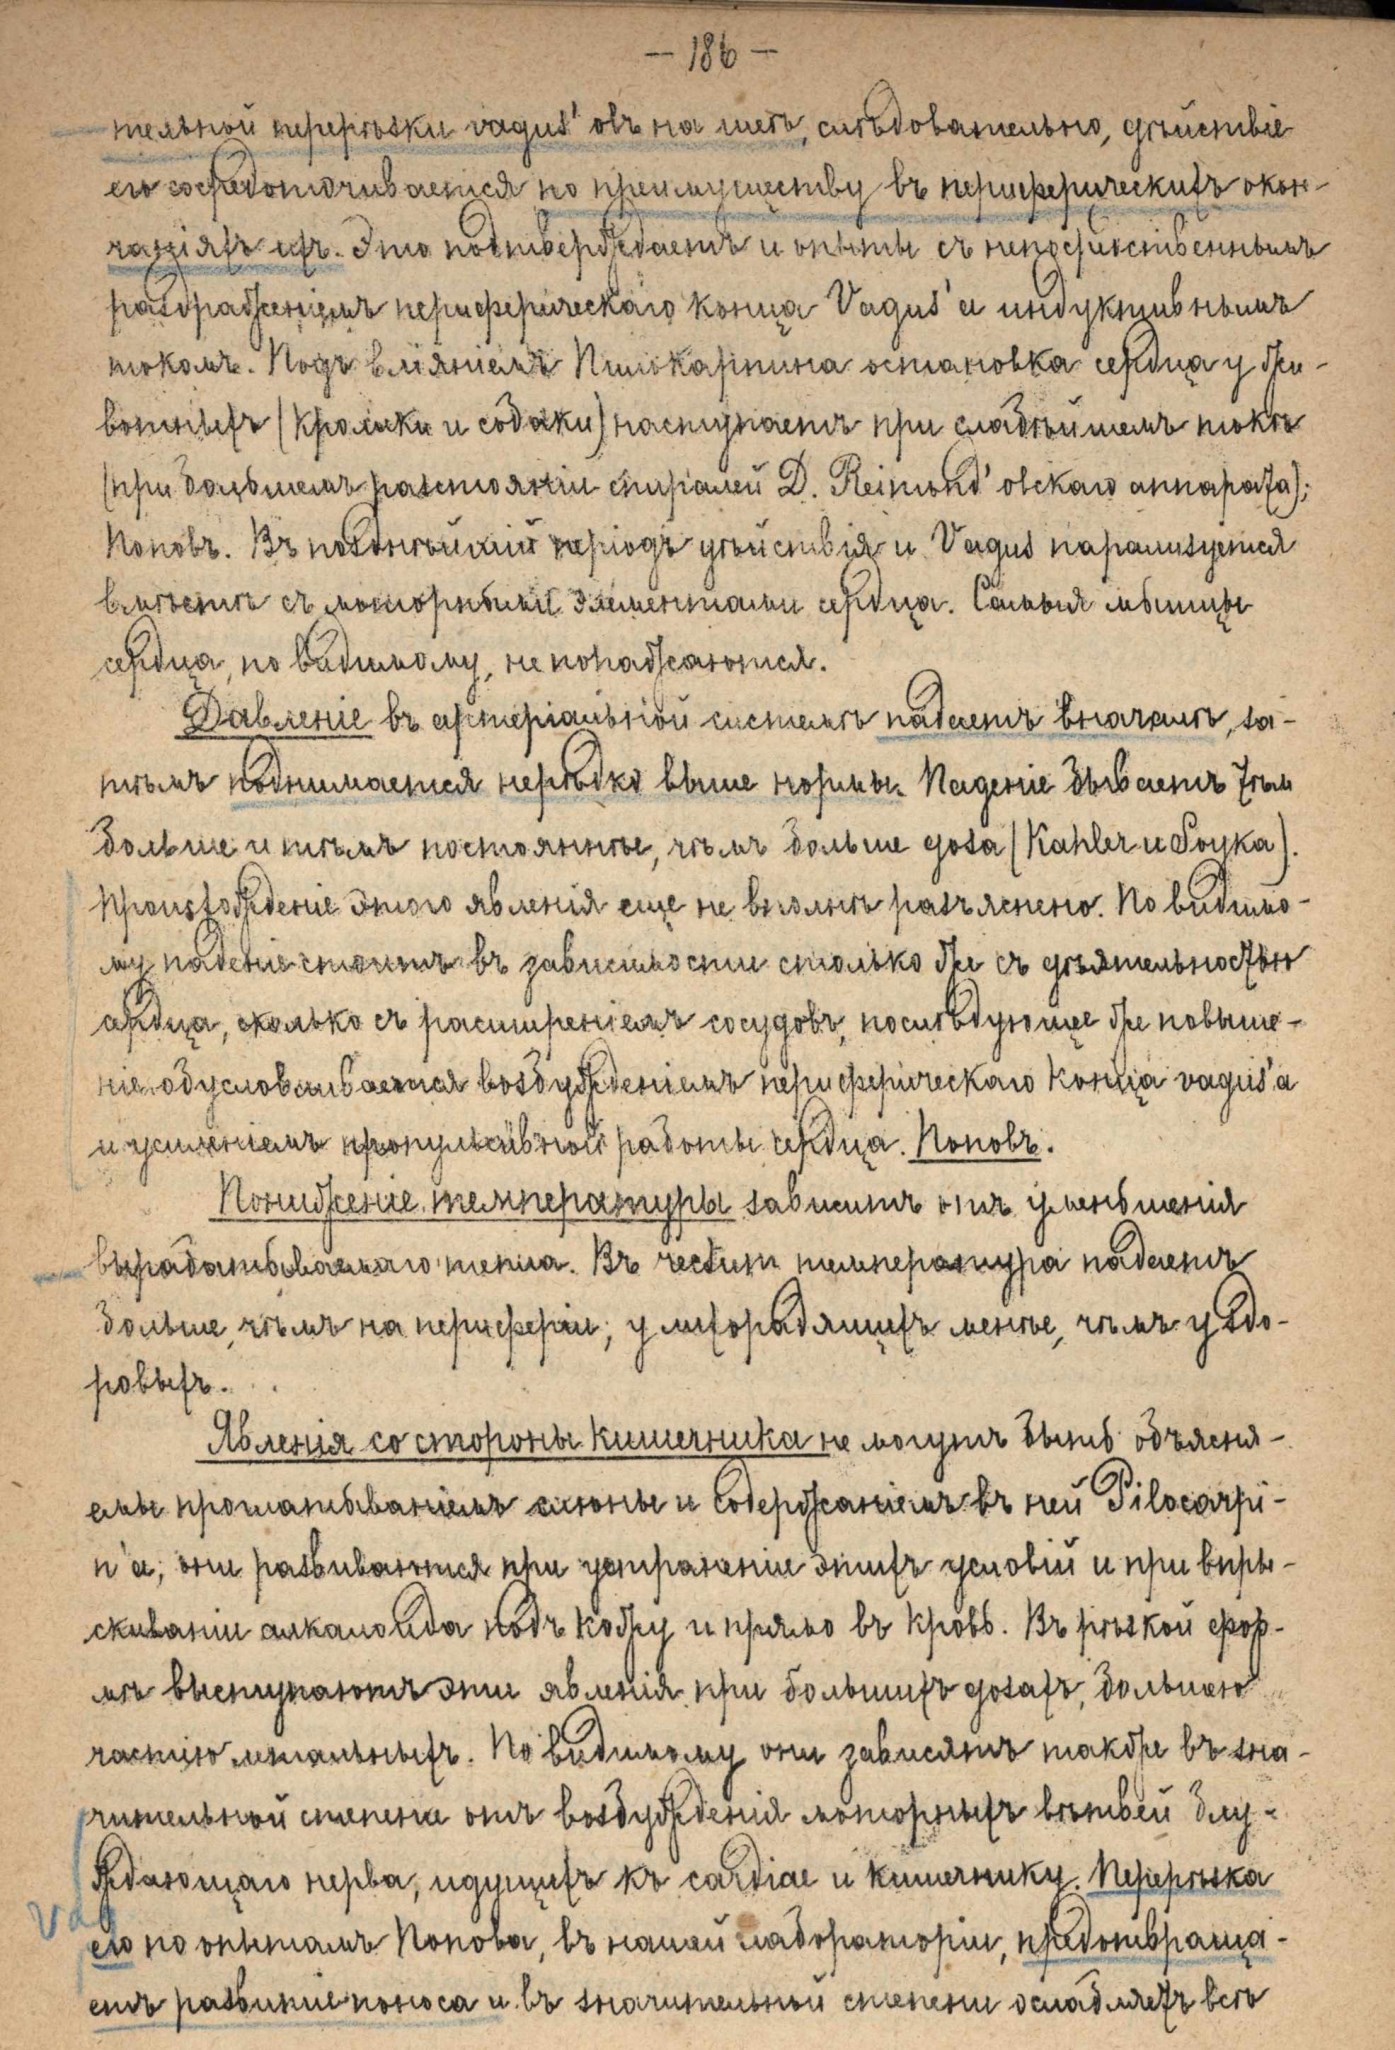 — 186 —
тельной перерѣзки vagus'овъ на шеѣ, слѣдовательно, дѣйствіе
его сосредоточивается по преимуществу въ периферическихъ окон-
чаніяхъ ихъ. Это подтверждаетъ и опыты съ непосредственнымъ
раздраженіемъ периферическаго конца Vagus'а индуктивнымъ
токомъ. Подъ вліяніемъ Пилокарпина остановка сердца у жи-
вотныхъ (кролики и собаки) наступаетъ при слабѣйшемъ токѣ
(при большемъ разстояніи спиралей D. Reimond'овскаго аппарата);
Поповъ. Въ позднѣйшій періодъ дѣйствія и Vagus парализуется
вмѣстѣ съ моторными элементами сердца. Самыя мышцы
сердца, по видимому, не поражаются.
Давленіе въ артеріальной системѣ падаетъ вначалѣ, за-
тѣмъ поднимается нерѣдко выше нормы. Паденіе бываетъ тѣм
больше и тѣмъ постояннѣе, чѣмъ больше доза (Kahler и Soyка).
Происхожденіе этого явленія еще не вполнѣ разъяснено. По видимо-
му паденіе стоитъ въ зависимости столько же съ дѣятельностью
сердца, сколько съ расширеніемъ сосудовъ, послѣдующее же повыше-
ніе обусловливается возбужденіемъ периферическаго конца vagus'а
и усиленіемъ пропульсивной работы сердца. Поповъ.
Пониженіе температуры зависитъ отъ уменьшенія
вырабатываемаго тепла. Въ rectum температура падаетъ
больше, чѣмъ на периферіи; у лихорадящихъ менѣе, чѣмъ у здо-
ровыхъ.
Явленія со стороны кишечника не могутъ быть объясня-
емы проглатываніемъ слюны и содержаніемъ въ ней Pilocarpi-
n'а; они развиваются при устраненіи этихъ условій и при впры-
скиваніи алкалоида подъ кожу и прямо въ кровь. Въ рѣзкой фор-
мѣ выступаютъ эти явленія при большихъ дозахъ, большею
частію летальныхъ. По видимому они зависятъ также въ зна-
чительной степени отъ возбужденія моторныхъ вѣтвей блу-
ждающаго нерва, идущихъ къ cardiae и кишечнику. Перерѣзка
его по опытамъ Попова, въ нашей лабораторіи, предотвраща-
етъ развитіе поноса и въ значительной степени ослабляетъ всѣ